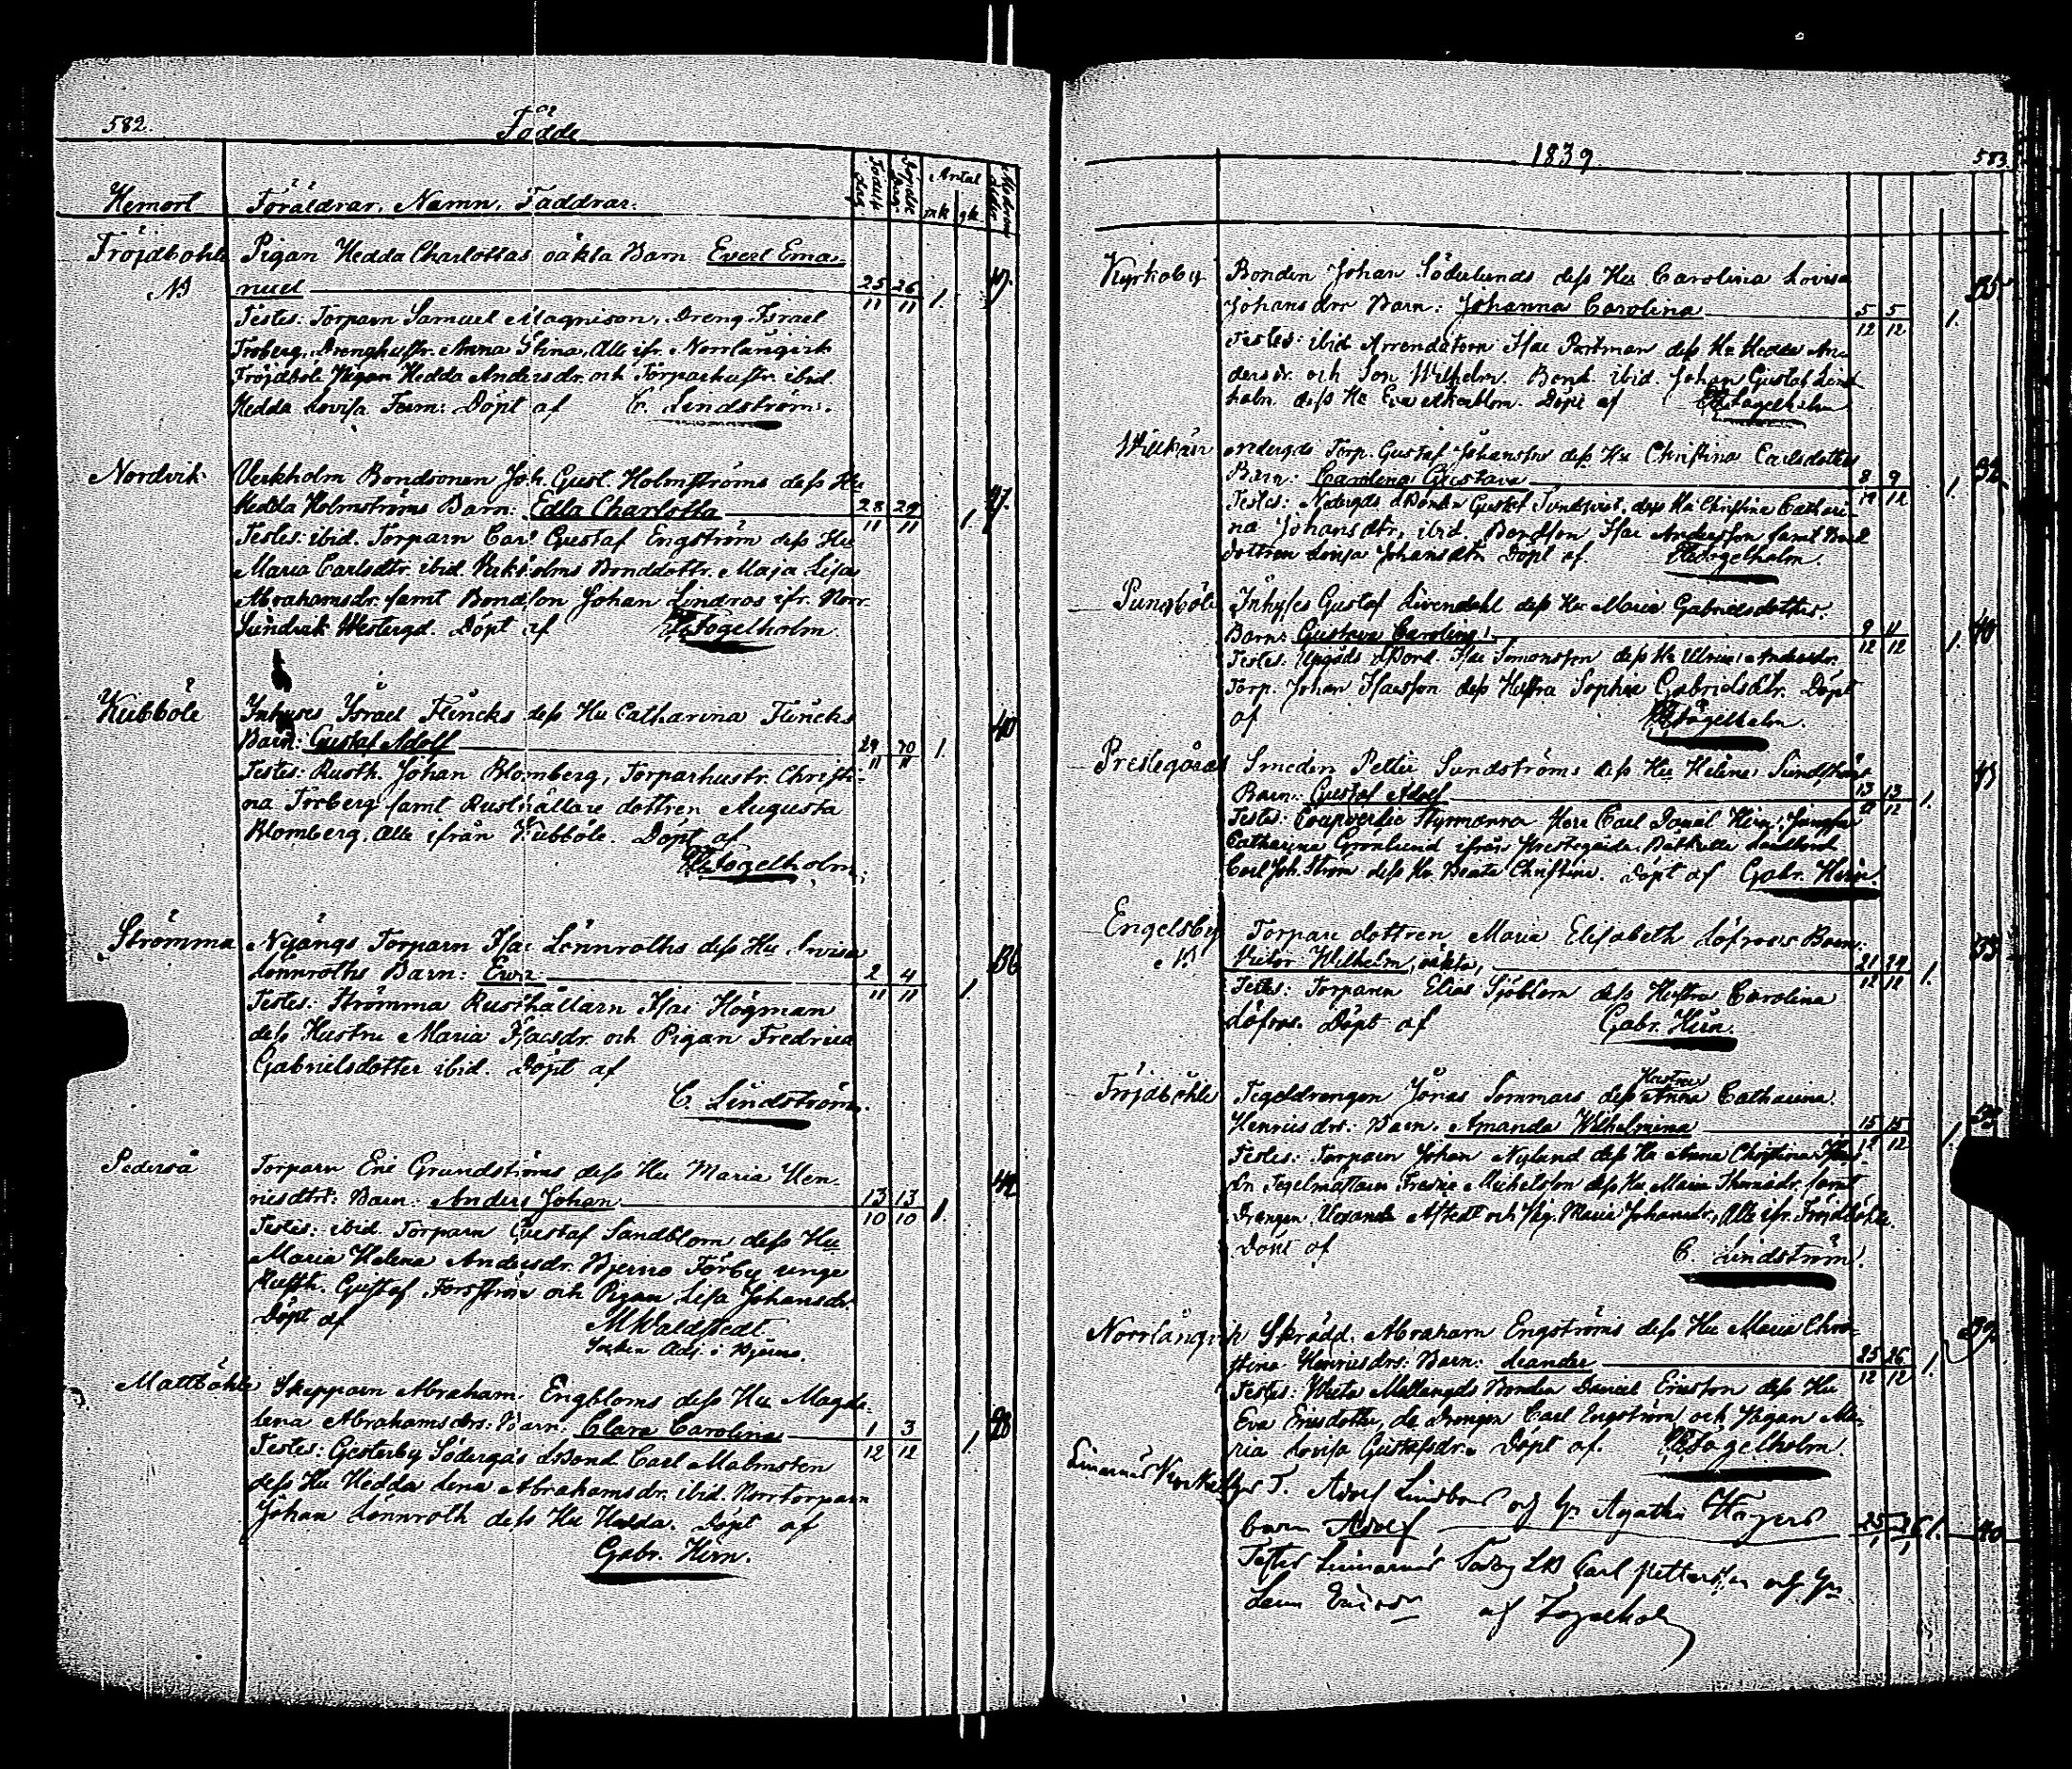 582.
Födde
Hemort
Föräldrar, Namn, Faddrar.
Födelse dag
Antal
mk
qk
Fröjdböhle
Pigan Hedda Charlottas oäkta Barn Evert Ema-
NB
nuel 25 26 1.
11 11
Testes: Torparn Samuel Magnison, Dreng Israel
Froberg, Drenghustr. Anna Stina, Alle ifr. Norrlångvik
Fröjdböle Pigan Hedda Andersdr. och Torparhustr. ibid.
Hedda Lovisa Döpt af C. Lindström.
Nordvik
Verkholm Bondsonen Joh. Gust. Holmströms dess Hu
Hedda Holmströms Barn: Edla Charlotta 28 29 1. 27.
11 11
Testes: ibid. Torparn Carl Gustaf Engström dess Hu
Maria Carlsdtr. ibid. Verkholms Bonddottr. Maja Lisa
Abrahamsdr. samt Bondson Johan Lindros ifr. Norr-
Sundvik Westergd. Döpt af Fogelholm.
Kubböle
Inhyses Israel Flincks dess Hu Catharina Flincks
Barn: Gustaf Adolf 29 30 1. 40
11 11
Testes: Rusth. Johan Blomberg, Torparhustr. Christi-
na Forberg samt Rusthållare dottren Augusta
Blomberg, Alle ifrån Kubböle. Döpt af
Fogelholm.
Strömma
Nyängs Torparn Isac Lönnroths dess Hu Lovisa
Lönnroths Barn: Ewa 2 4 1. 36
11 11
Testes: Strömma Rusthållarn Isac Högman
dess Hustru Maria Isacsdr. och Pigan Fredrica
Gabrielsdotter ibid. Döpt af
C. Lindström.
Pederså
Torparn Eric Grundströms dess Hu Maria Hen-
ricsdtrs: Barn: Anders Johan 13 13 1. 42
10 10
Testes: ibid. Torparn Gustaf Sandblom dess Hu
Maria Helena Andersdr. Bjerno Förby unge
Rusth. Gustaf Forsström och Pigan Lisa Johansdr.
Döpt af M Waldstedt
Socken Adj. i Bjerno.
Mattböhle
Skepparn Abraham Engbloms dess Hu Magda-
lena Abrahamsdrs: Barn: Clara Carolina 1 3 1. 28
12 12
Testes: Gesterby Södergds Bond Carl Malmsten
dess Hu Hedda Lena Abrahamsdr. ibid. Norrtorparn
Johan Lönnroth dess Hu Hedda. Döpt af
Gabr. Hirn.
1839.
583.
Kyrkoby
Bonden Johan Söderlunds dess Hu Carolina Lovisa
Johansdrs Barn: Johanna Carolina 5 5 1. 35
12 12
Testes: ibid Arrendatorn Isac Portman dess Hu Hedda An-
dersdr. och Son Wilhelm. Bond. ibid. Johan Gustaf Lind-
holm dess Hu Eva Åkerblom. Döpt af Fogelholm
Nedergds Torp. Gustaf Johansson dess Hu Christina Carlsdotters
Barn: Carolina Gustava 8 9 1. 32
12 12
Testes: Nedergds Bonden Gustaf Sundqvist, dess Hu Christina Cathari-
na Johansdtr, ibid. Bondson Isac Andersson samt Bond
dottren Lovisa Johansdtr. Döpt af Fogelholm.
Pungböle
Inhyses Gustaf Livendahl dess Hu Maria Gabrielsdotters
Barn: Gustava Carolina 9 11 1. 40
12 12
Testes: Uppgds Bond. Isac Simonsson dess Hu Ulrica Andersdr.
Torp. Johan Isacsson dess Hustru Sophia Gabrielsdtr. Döpt
af Fogelholm.
Prestegård
Smeden Petter Sundströms dess Hu Helena Sundströms
Barn: Gustaf Adolf 13 13 1. 43
12 12
Testes: Styrmanna Herr Carl Daniel Hirn, Jungfru
Catharina Grönlund ifrån Prestegården,
Carl Joh. Ström dess Hu Beata Christina. Döpt af Gabr. Hirn.
Engelsby
NB
Torpare dottren Maria Elisabeth Löfroos Barn:
Victor Wilhelm, oäkta, 21 24 1. 33
12 12
Testes: Torparen Elias Sjöblom dess Hustru Carolina
Löfroos. Döpt af Gabr. Hirn.
Fröjdböhle
Tegeldrengen Jonas Sommars dess Hustru Anna Catharina
Henricsdrs: Barn. Amanda Wilhelmina 15 15 1.
12 12
Testes: Torparn Johan Nylund dess Hu Anna Christina
Tegelmästarn Fredric Michelsson dess Hu Maria samt
Drängen och Pig. Maria Johansdr., Alle ifr. Fröjdböhle.
Döpt af C. Lindström.
Norrlångvik
Skrädd. Abraham Engströms dess Hu Maria Chri-
stina Henricsdrs: Barn: Leander 25 26 1. 39
12 12
Testes: Mellangds Bonden Daniel Ericsson dess Hu
Eva Ericsdotter, Drengen Carl Engström och Pigan Ma-
ria Lovisa Gustafsdr. Döpt af. Fogelholm
T. Adolf Lindbom och Agatha
barn Adolf 25 26 1. 40
1 1
Testes Carl Pettersson och
af Fogelholm